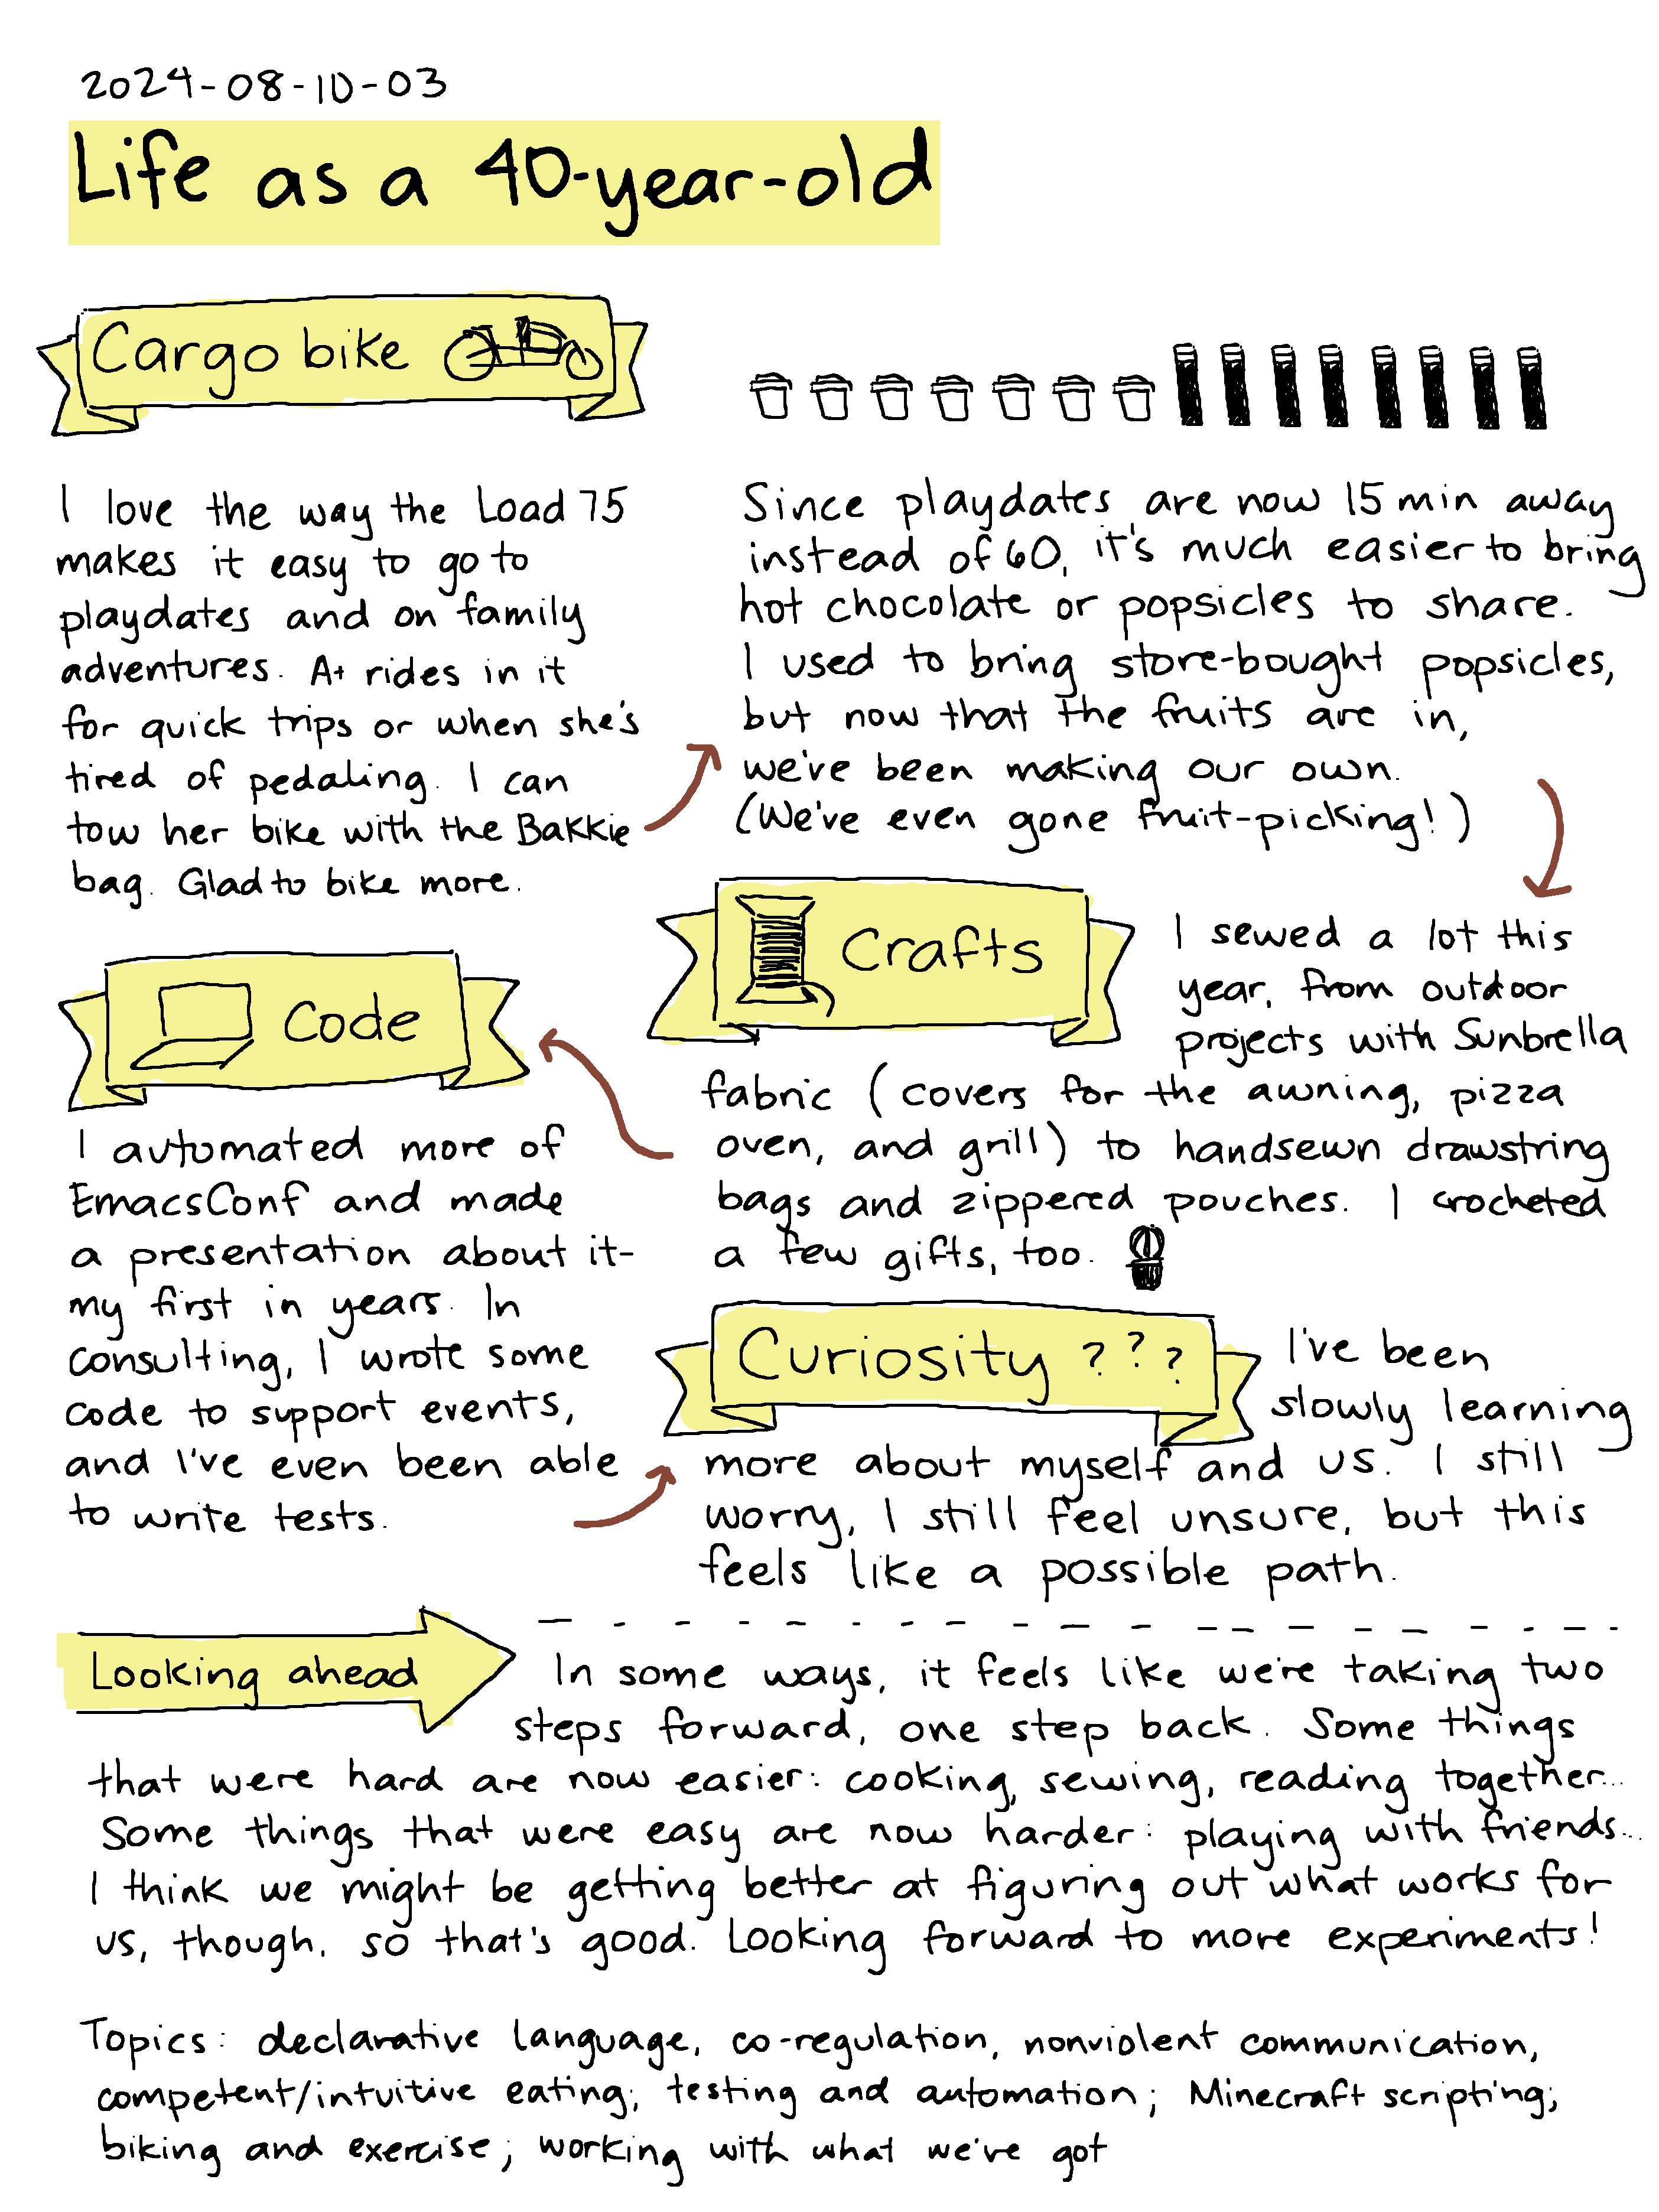 2024-08-10-03
Life as a 40-year-old
Cargo bike
I love the way the Load 75
makes it easy to go to
playdates and on family
adventures. A+ rides in it
for quick trips or when she's
tired of pedaling. I can
tow her bike with the Bakkie
bag. Glad to bike more.
Since playdates are now 15 min away
instead of 60, it's much easier to bring
hot chocolate or popsicles to share.
I used to bring store-bought popsicles,
but now that the fruits are in,
we've been making our own.
(We've even gone fruit-picking!)
Crafts
I sewed a lot this
year, from outdoor
projects with Sunbrella
fabric (covers for the awning, pizza
oven, and grill) to handsewn drawstring
bags and zippered pouches. I crocheted
a few gifts, too.
Code
I automated more of
EmacsConf and made
a presentation about it-
my first in years. In
consulting, I wrote some
code to support events,
and I've even been able
to write tests.
Curiosity ???
I've been
slowly learning
more about myself and us. I still
worry, I still feel unsure, but this
feels like a possible path.
Looking ahead
In some ways, it feels like we're taking two
steps forward, one step back. Some things
that were hard are now easier: cooking, sewing, reading together...
Some things that were easy are now harder: playing with friends...
I think we might be getting better at figuring out what works for
us, though, so that's good. Looking forward to more experiments!
Topics: declarative language, co-regulation, nonviolent communication,
competent/intuitive eating; testing and automation; Minecraft scripting;
biking and exercise; working with what we've got